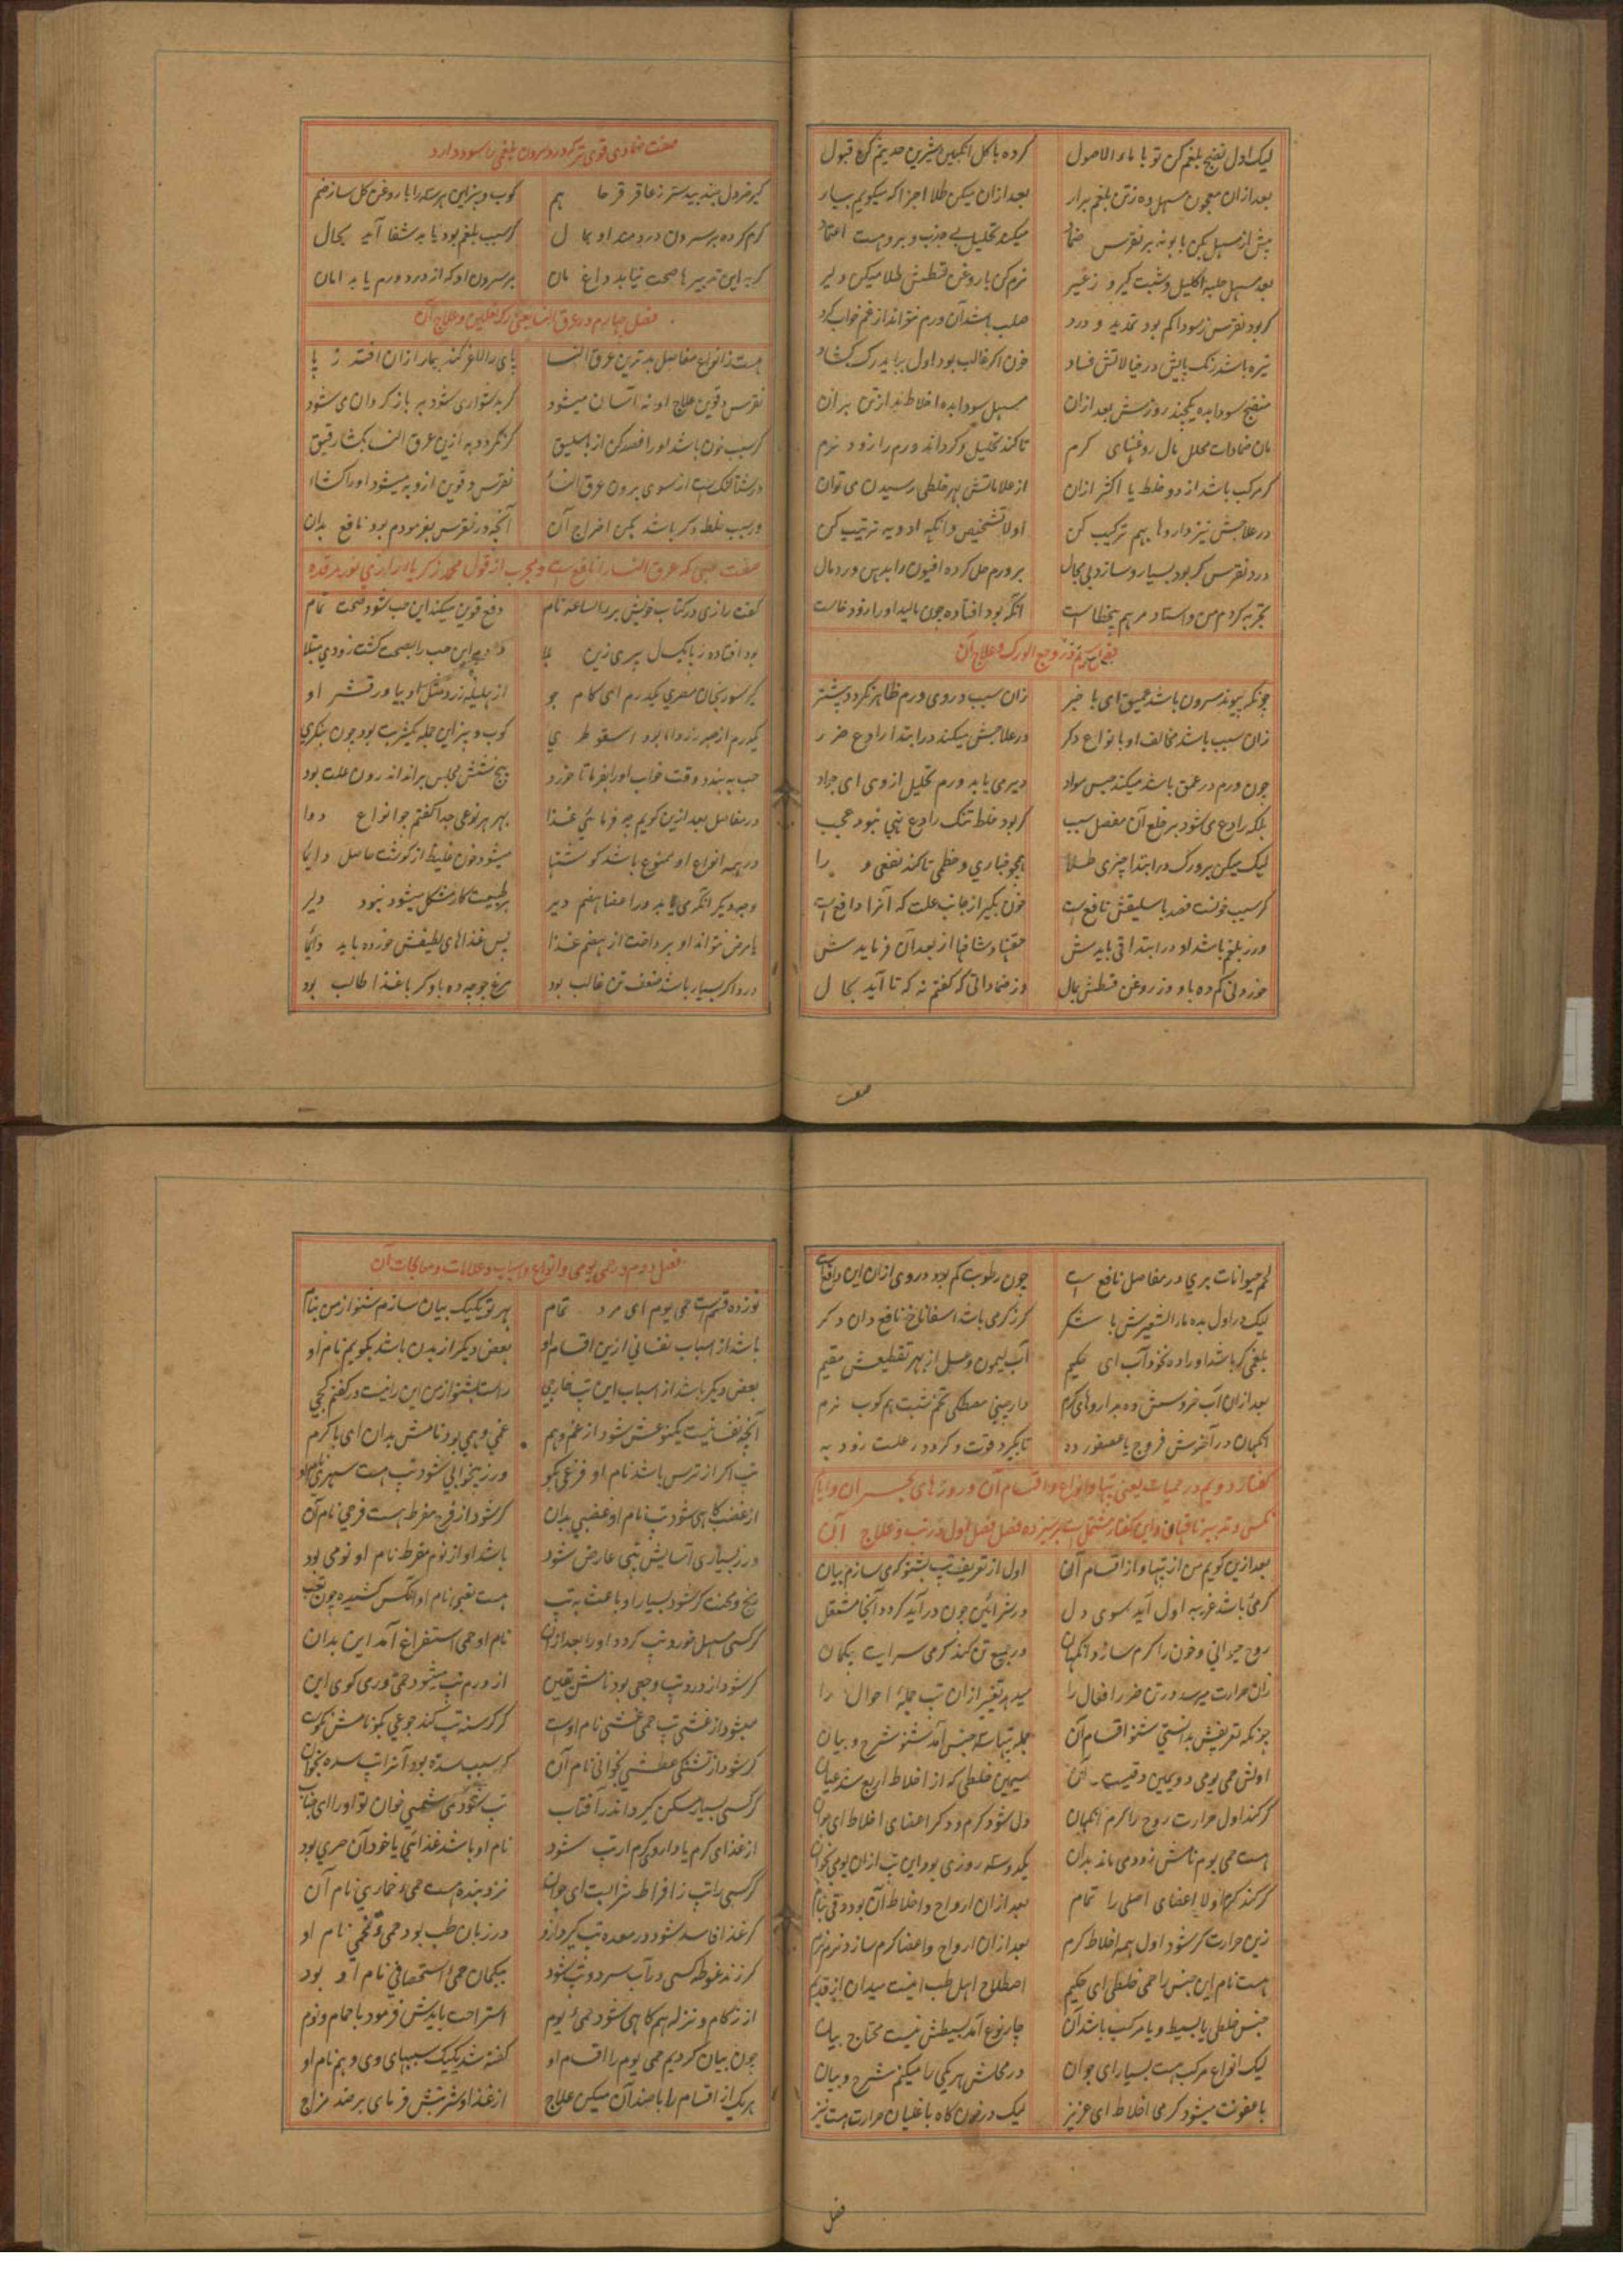 لیک اول نضج بلغم کن تو با ماء الاصول کرده با کل انکبین شیرین حدیثم کن قبول
بعد ازان معجون مسهل ده زتن بلغم برار بعد ازان میکن طلا اجزا که میکویم بیار
پیش از مسهل بکن بابونه بر نقرس ضماد میکند تحلیل بی جذب و برو هست اعتماد
بعد مسهل حلبه اکلیل و شبت کیر و زغیر نرم کن با روغن قسطش طلا میکن دلیر
کر بود نقرس ز سودا کم بود تمدید و درد صلب باشد آن ورم نتواند از غم خواب کرد
تیره باشد رنک پایش در خیالاتش فساد خون اکر غالب بود اول بباید رک کشاد
منضج سودا بده یکچند روزش بعد ازان مسهل سودا بده اخلاط بد از تن بران
مان ضمادات محلل مال روغنهای کرم تا کند تحلیل و کرداند ورم را زود نرم
کر مرکب باشد از دو خلط یا اکثر ازان از علاماتش بهر خلطی رسیدن می توان
در علاجش نیز داروها بهم ترکیب کن اولا تشخیص و انکه ادویه ترتیب کن
درد نقرس کر بود بسیار و سازد بی مجال بر ورم حل کرده افیون را بدهن ورد مال
تجربه کردم من و استاد مرهم بیخطاست انکه بود افتاده چون مالید او را زود خاست
فصل سیم در وجع الورک و علاج آن
چونکه پیوند سرون باشد عمیق ای با خبر زان سبب در وی ورم ظاهر نکردد بیشتر
زان سبب باشد مخالف او با نواع دکر در علاجش میکند در ابتدا رادع ضرر
چون ورم در عمق باشد میکند حبس مواد دیر می یابد ورم تحلیل از وی ای جواد
بلکه رادع می شود بر خلع آن مفصل سبب کر بود خلط تنک رادع نهی نبود عجب
لیک میکن بر ورک در ابتدا چیزی طلا همچو خبازی و خطمی تا کند نفعی و را
کر سبب خونست فصد باسلیقش نافع است خون بکیر از جانب علت که آنرا دافع است
ور ز بلغم باشد او در ابتدا قی بایدش حقنها و شافها از بعد آن فرمایدش
خوردنی کم ده باو وز روغن قسطش بمال وز ضماداتی که کفتم نه که تا آید بحال
صفت
صفت ضمادی قوی تر که درد سرون بلغمی را سود دارد
کیر خردل جند بیدستر ز عاقر قرحا هم کوب و بیز این هر سه را با روغن کل ساز ضم
کرم کرده بر سرون دردمند او بمال کر سبب بلغم بود یابد شفا آید بحال
کر به این تدبیرها صحت نیابد داغ مان بر سرون او که از درد ورم یابد امان
فصل چهارم در عرق النسا یعنی رک نعلین و علاج آن
هست ز انواع مفاصل بدترین عرق النسا پای را لاغر کند بیمار ازان افتد ز پا
نقرس و قوین علاج او نه آسان میشود کر بدشواری شود به باز کردان می شود
کر سبب خون باشد او را فصد کن از باسلیق کر نکردد به ازین عرق النسا بکشا رقیق
آنچه در نقرس بفرمودم بود نافع بدان
صفت حبی که عرق النسا را نافع است و مجرب از قول محمد زکریا رازی نور مرقده
کفت رازی در کتاب خویش برء الساعه نام دفع قوین میکند این حب شود صحت تمام
کیر سورنجان مصری یکدرم ای کام جو از هلیله زرد مثل او بیاور قشر او
حب به بند و وقت خواب او را بفرما تا خورد پنج شش مجلس براند اندرون علت بود
در مفاصل بعد ازین کویم چه فرمائی غذا بهر هر نوعی جدا کفتم چو انواع دوا
در همه انواع او ممنوع باشد کوشتها میشود خون غلیظ از کوشت حاصل دایما
وجه دیکر انکه می یابد ورا معده هضم دیر بر طبیعت کار مشکل میشود نبود دلیر
با مرض نتواند او پرداخت از هضم غذا پس غذاهای لطیفش خورده باید دائما
درد اکر بسیار باشد ضعف تن غالب بود مرغ جوجه ده باو کر با غذا طالب بود
لحم حیوانات بری در مفاصل نافع است چون رطوبت کم بود در وی ازان این دافع است
لیک در اول بده ماء الشعیرش با شکر کر ز کرمی باشد اسفاناخ نافع دان دکر
بلغمی کر باشد او را ده نخود آب ای حکیم آب لیمون و عسل از بهر تقطیعش مقیم
بعد ازان آب خروسش ده بداروهای کرم دارچینی مصطکی تخم شبت هم کوب نرم
انکهان در آخرش فروج یا عصفور ده تا بکیرد قوت و کردد ز علت زود به
کفتار دویم در حمیات یعنی تبها و انواع و اقسام آن و روزهای بحران و ایام
نکس و تدبیر ناقهان و این کفتار مشتمل است بر سیزده فصل فصل اول در تب و علاج آن
بعد ازین کویم من از تبها و از اقسام آن اول از تعریف تب بشنو که می سازم بیان
کرمئ باشد غریبه اول آید سوی دل در شرائین چون در آید کردد آنجا مشتعل
روح حیوانی و خون را کرم سازد انکهان در جمیع تن کند کرمی سرایت بیکمان
زان حرارت میرسد در تن ضرر افعال را میدهد تغییر ازان تب جملهٔ احوال را
چونکه تعریفش بدانستی شنو اقسام آن جمله تبها سه جنس آمد شنو شرح و بیان
اولش حمی یومی دویمین دقیست آن سیمین خلطی که از اخلاط اربع شد عیان
کر کند اول حرارت روح را کرم انکهان دل شود کرم و دکر اعضای اخلاط ای جوان
هست حمی یوم نامش زود می ماند بدان یکدو سه روزی بود این تب ازان یومی بخوان
کر کند کرم اولا اعضای اصلی را تمام بعد ازان ارواح و اخلاط آن بود دقی بنام
زین حرارت کر شود اول همه اخلاط کرم بعد ازان ارواح و اعضا کرم سازد نرم نرم
هست نام این جنس را حمی خلطی ای حکیم اصطلاح اهل طب اینست میدان از قدیم
جنس خلطی یا بسیط و یا مرکب باشد آن چار نوع آمد بسیطش نیست محتاج بیان
لیک انواع مرکب هست بسیار ای جوان در محلش هر یکی را میکنم شرح و بیان
با عفونت میشود کرمی اخلاط ای عزیز لیک در خون کاه با غلیان حرارت هست نیز
فصل
فصل دوم در حمی یومی و انواع و اسباب و علامات و معالجات آن
نوزده قسم است حمی یوم ای مرد تمام بهر تو یکیک بیان سازم شنو از من بنام
باشد از اسباب نفسانی ازین اقسام او بعض دیکر از بدن باشد بکویم نام او
بعض دیکر باشد از اسباب این تب خارجی راست بشنو از من این را نیست در کفتم کجی
آنچه نفسانیست یکنوعش شود از غم و هم غمی و همی بود نامش بدان ای با کرم
تب اکر از ترس باشد نام او فزعی بکو ور ز بیخوابی شود تب هست سهری نام او
از غضب کاهی شود تب نام او غضبی بدان کر شود از فرح مفرط هست فرحی نام آن
ور ز بسیاری آسایش تبی عارض شود باشد او از نوم مفرط نام او نومی بود
کر کسی مسهل خورد تب کردد او را بعد ازان نام او حمی استفراغ آمد این بدان
کر شود از درد تب وجعی بود نامش یقین از ورم تب میشود حمی ورمی کوی این
میشود از غشی تب حمی غشی نام اوست کر کرسنه تب کند جوعی بکو نامش نکوست
کر شود از تشنکی عطشی بخوانی نام آن کر سبب سده بود آنرا تب سده بخوان
کر کسی بسیار مسکن کیرد اندر آفتاب تب شود حمی شمسی خوان تو او را ای جناب
از غذای کرم یا داروی کرم ار تب شود نام او باشد غذائی یا خود آن حری بود
کر کسی را تب ز افراط شرابست ای جوان نزد بنده هست حمی خماری نام آن
کر غذا فاسد شود در معده تب کیرد ازو در زبان طب بود حمی تخمی نام او
کر زند غوطه کسی در آب سرد و تب شود بیکمان حمئ استحصافی نام او بود
از زکام و نزله هم کاهی شود حمئ یوم استراحت بایدش فرمود با حمام و نوم
چون بیان کردیم حمی یوم را اقسام او کفته شد یکیک سببهای وی و هم نام او
هر یک از اقسام را با ضد آن میکن علاج از غذا و شربتش فرمای بر ضد مزاج